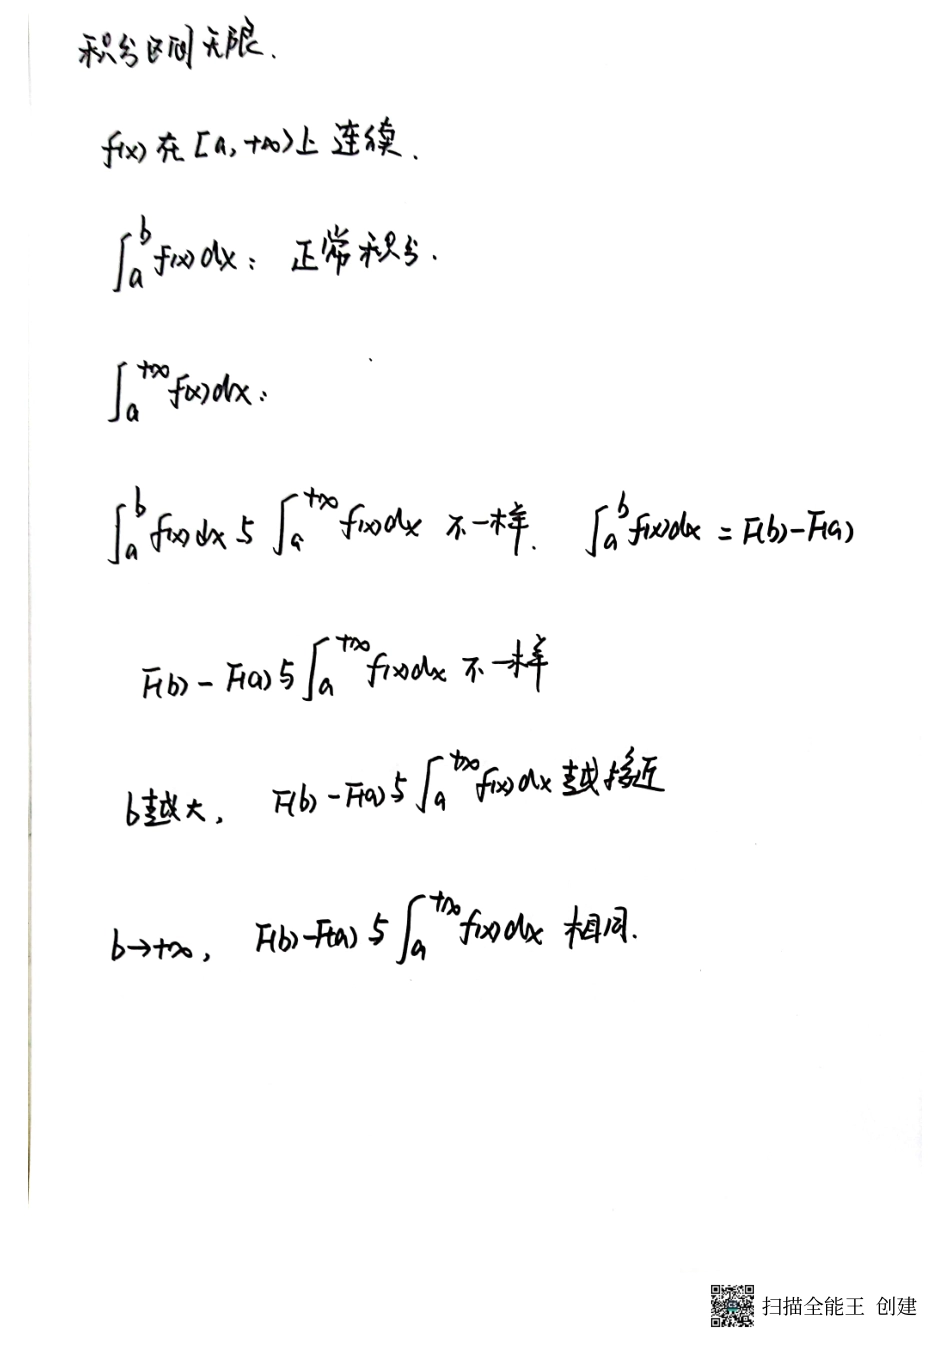 积分区间无限.
f(x) 在 [a, +∞) 上 连续.
∫_a^b f(x) dx: 正常积分.
∫_a^{+∞} f(x) dx:
∫_a^b f(x) dx 与 ∫_a^{+∞} f(x) dx 不一样. ∫_a^b f(x) dx = F(b) - F(a)
F(b) - F(a) 与 ∫_a^{+∞} f(x) dx 不一样
b越大, F(b) - F(a) 与 ∫_a^{+∞} f(x) dx 越接近
b→+∞, F(b) - F(a) 与 ∫_a^{+∞} f(x) dx 相同.
扫描全能王 创建